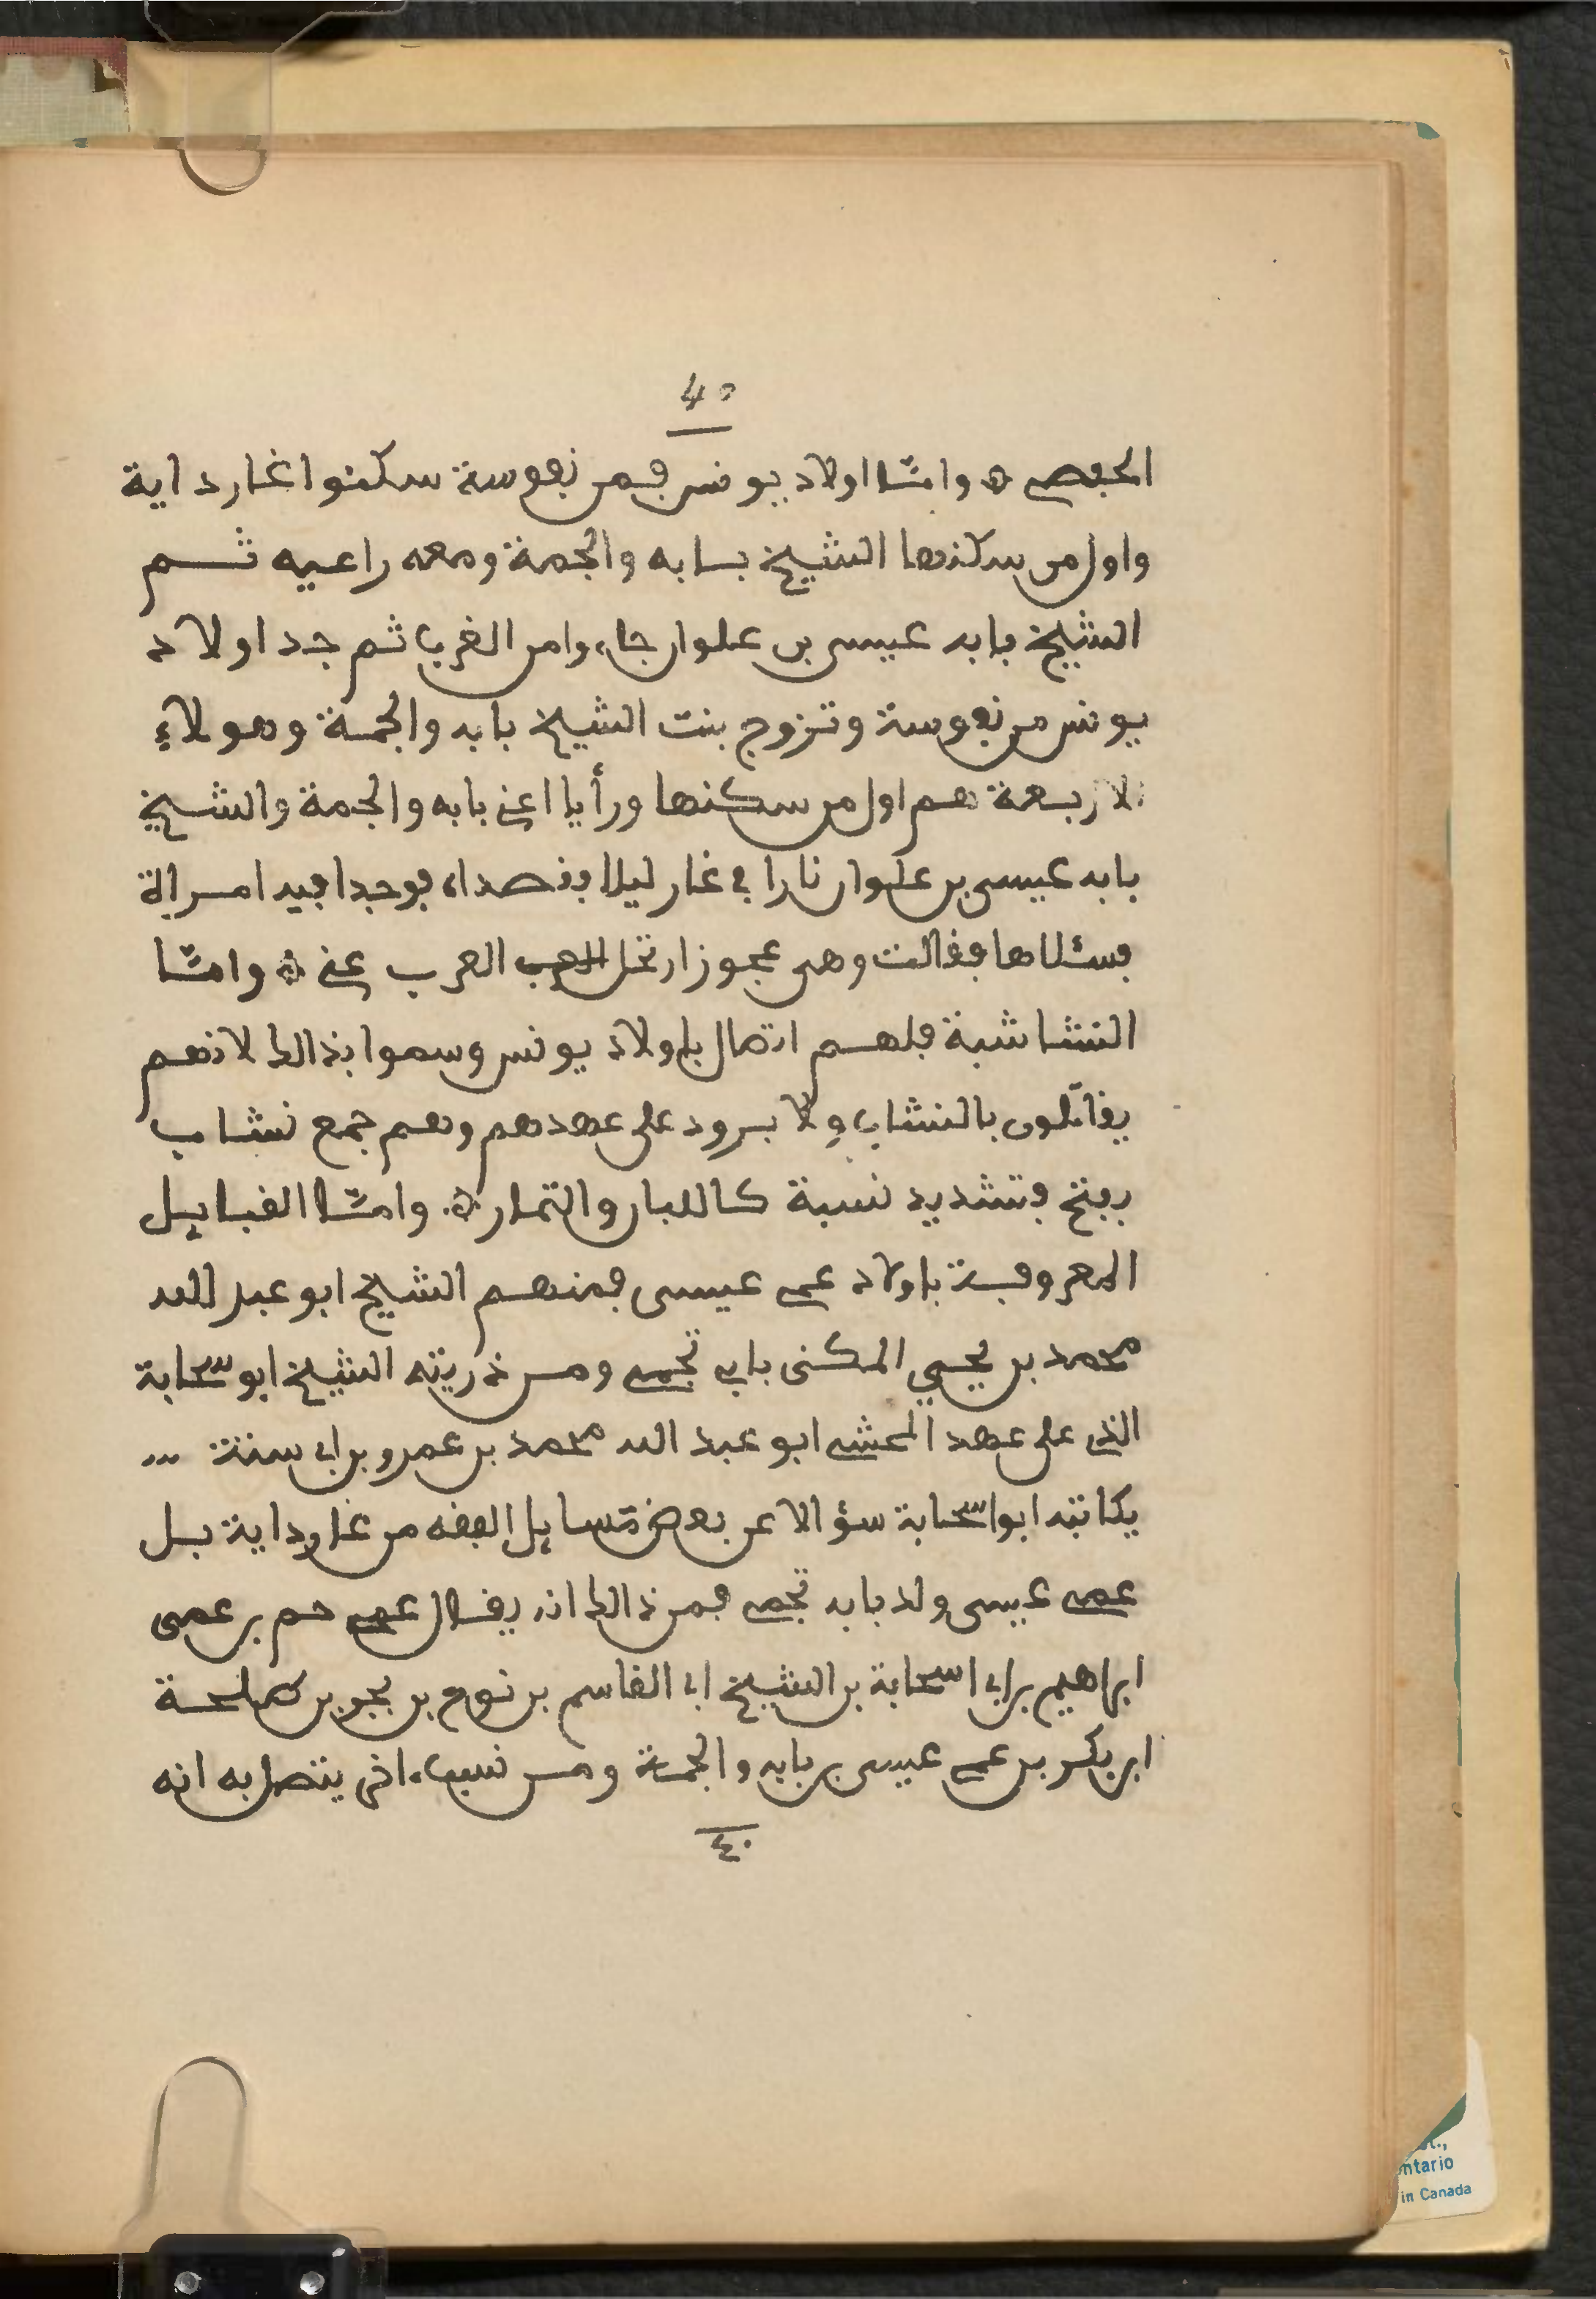 40
الحفصي ۞ وامّا اولاد يونس فمن نفوسة سكنوا اغارداية
واول من سكنها الشيخ بسابه والجمة ومعه راعيه ثم
الشيخ بابه عيسى بن علوان جاءوا من الغرب ثم جد اولاد
يونس من نفوسة وتزوج بنت الشيخ بابه والجمة وهولاء
الاربعة هم اول من سكنها ورأيا اعني بابه والجمة والشيخ
بابه عيسى بن علوان نارا في غار ليلا فقصداه فوجدا فيه امراة
فسئلاها فقالت وهي عجوز ارتحل العرب عني ۞ وامّا
النشاشبة فلهم اتصال باولاد يونس وسموا بذالك لانهم
يقاتلون بالنشاب ولا برود على عهدهم وهم جمع نشاب
بفتح وتشديد نسبة كاللبان والتمار ۞ وامّا القبايل
المعروفة باولاد عمي عيسى فمنهم الشيخ ابو عبد الله
محمد بن يحيي المكنى بابي تجمي ومن ذريته الشيخ ابو سحابة
الذي على عهد المحشي ابو عبد الله محمد بن عمرو بن ابي ستة ...
يكاتبه ابو اسحابة سؤالا عن بعض مسايل الفقه من غارداية بل
عمي عيسى ولد بابه تجمي فمن ذالك انه يقال عمي حم بن عمي
ابراهيم بن ابي اسحابة بن الشيخ ابي القاسم بن نوح بن يجر بن صلحة
ابن بكر بن عمي عيسى بن بابه والجمة ومن نسب اخر يتصل به انه
٤٠
ntario
in Canada